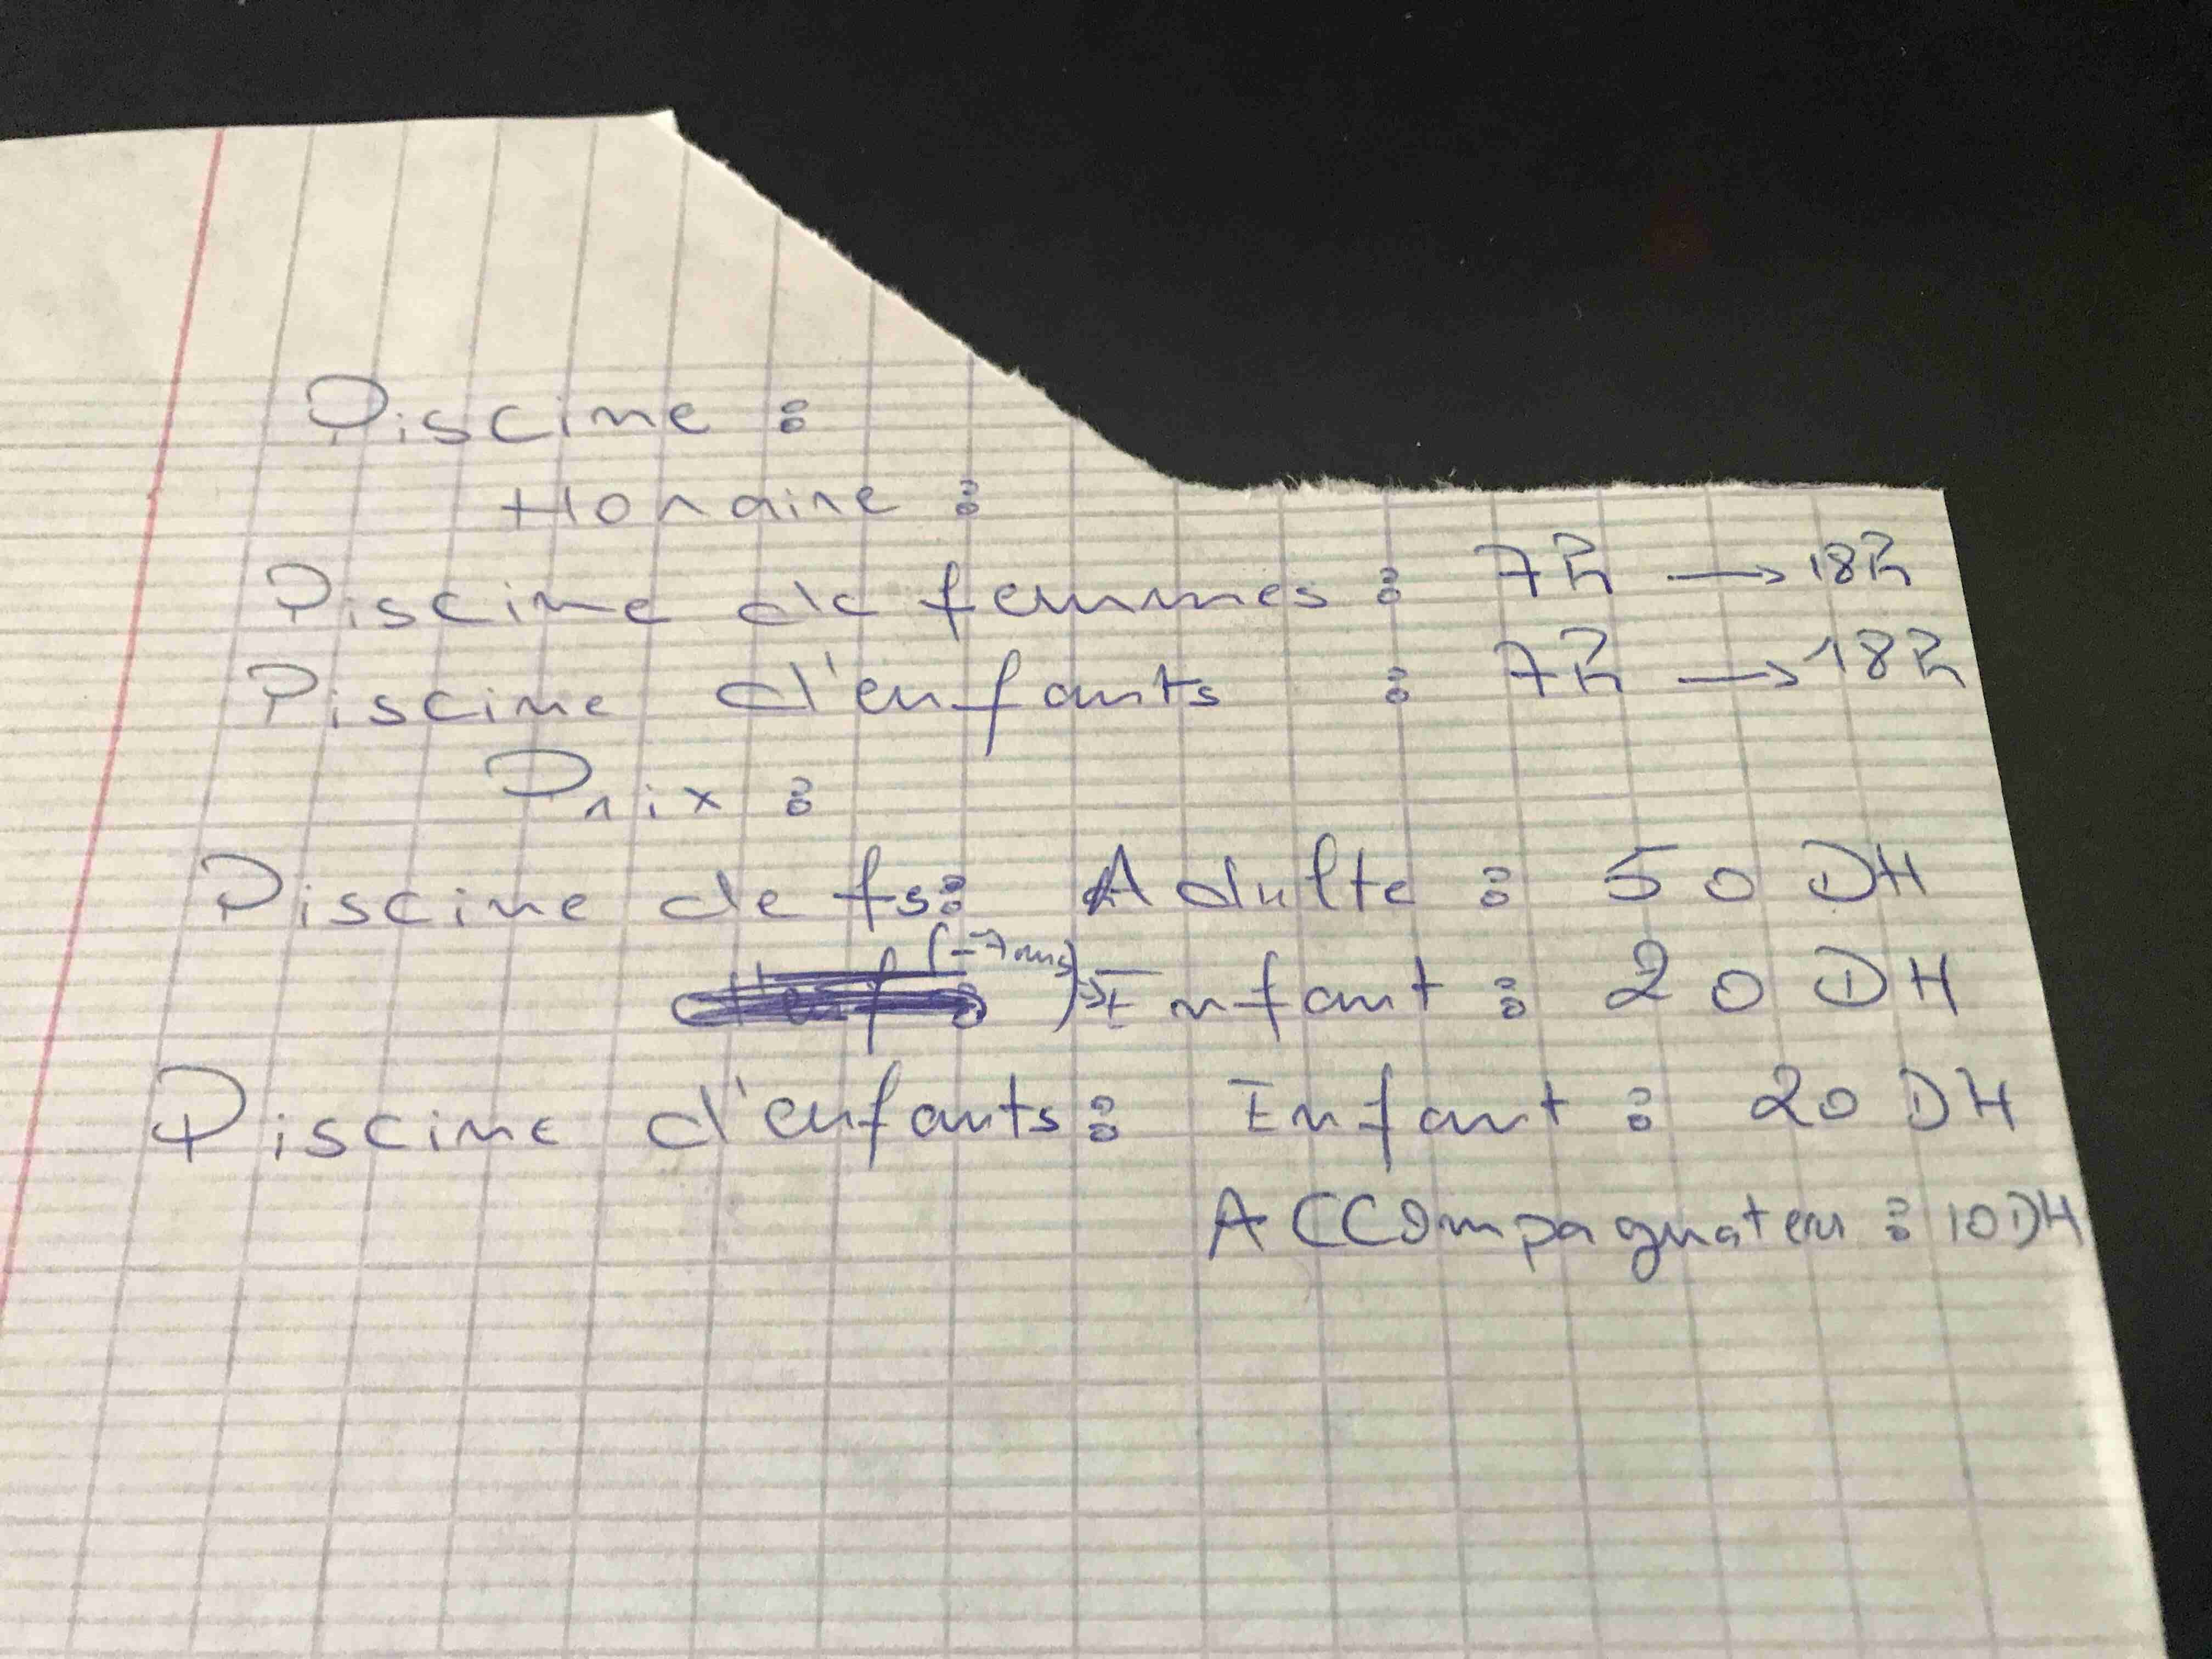 Piscine :
Horaire :
Piscine de femmes : 7h → 18h
Piscine d'enfants : 7h → 18h
Prix :
Piscine de fs: Adulte : 50 DH
(-7ans) Enfant : 20 DH
Piscine d'enfants: Enfant : 20 DH
ACCOmpagnateur : 10DH